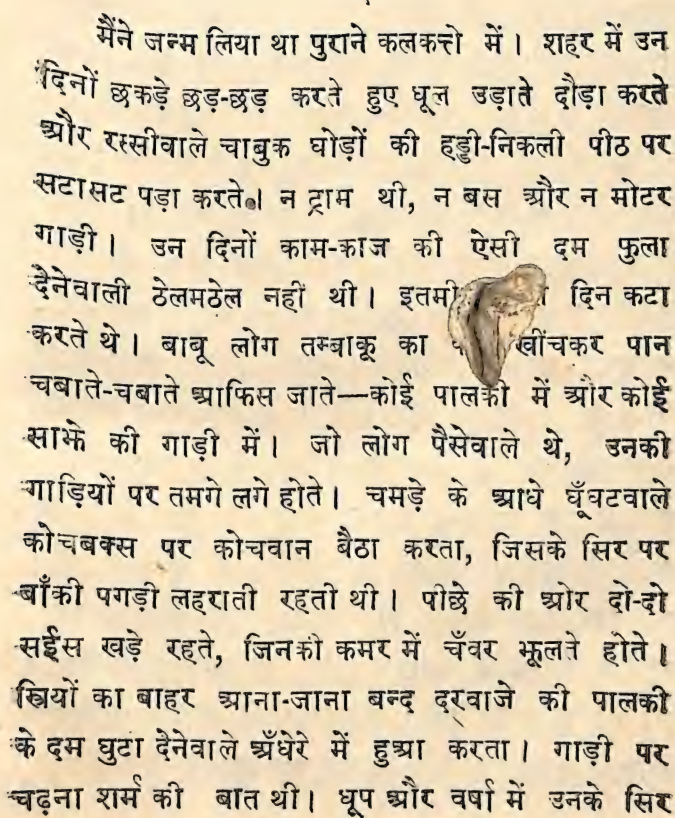 मैंने जन्म लिया था पुराने कलकत्ते में। शहर में उन
दिनों छकड़े छड़-छड़ करते हुए धूल उड़ाते दौड़ा करते
और रस्सीवाले चाबुक घोड़ों की हड्डी-निकली पीठ पर
सटासट पड़ा करते। न ट्राम थी, न बस और न मोटर
गाड़ी। उन दिनों काम-काज की ऐसी दम फुला
देनेवाली ठेलमठेल नहीं थी। दिन कटा
करते थे। बाबू लोग तम्बाकू का खींचकर पान
चबाते-चबाते आफिस जाते—कोई पालकी में और कोई
साझे की गाड़ी में। जो लोग पैसेवाले थे, उनकी
गाड़ियों पर तमगे लगे होते। चमड़े के आधे घूँघटवाले
कोचबक्स पर कोचवान बैठा करता, जिसके सिर पर
बाँकी पगड़ी लहराती रहती थी। पीछे की ओर दो-दो
सईस खड़े रहते, जिनकी कमर में चँवर झूलते होते।
स्त्रियों का बाहर आना-जाना बन्द दरवाजे की पालकी
के दम घुटा देनेवाले अँधेरे में हुआ करता। गाड़ी पर
चढ़ना शर्म की बात थी। धूप और वर्षा में उनके सिर